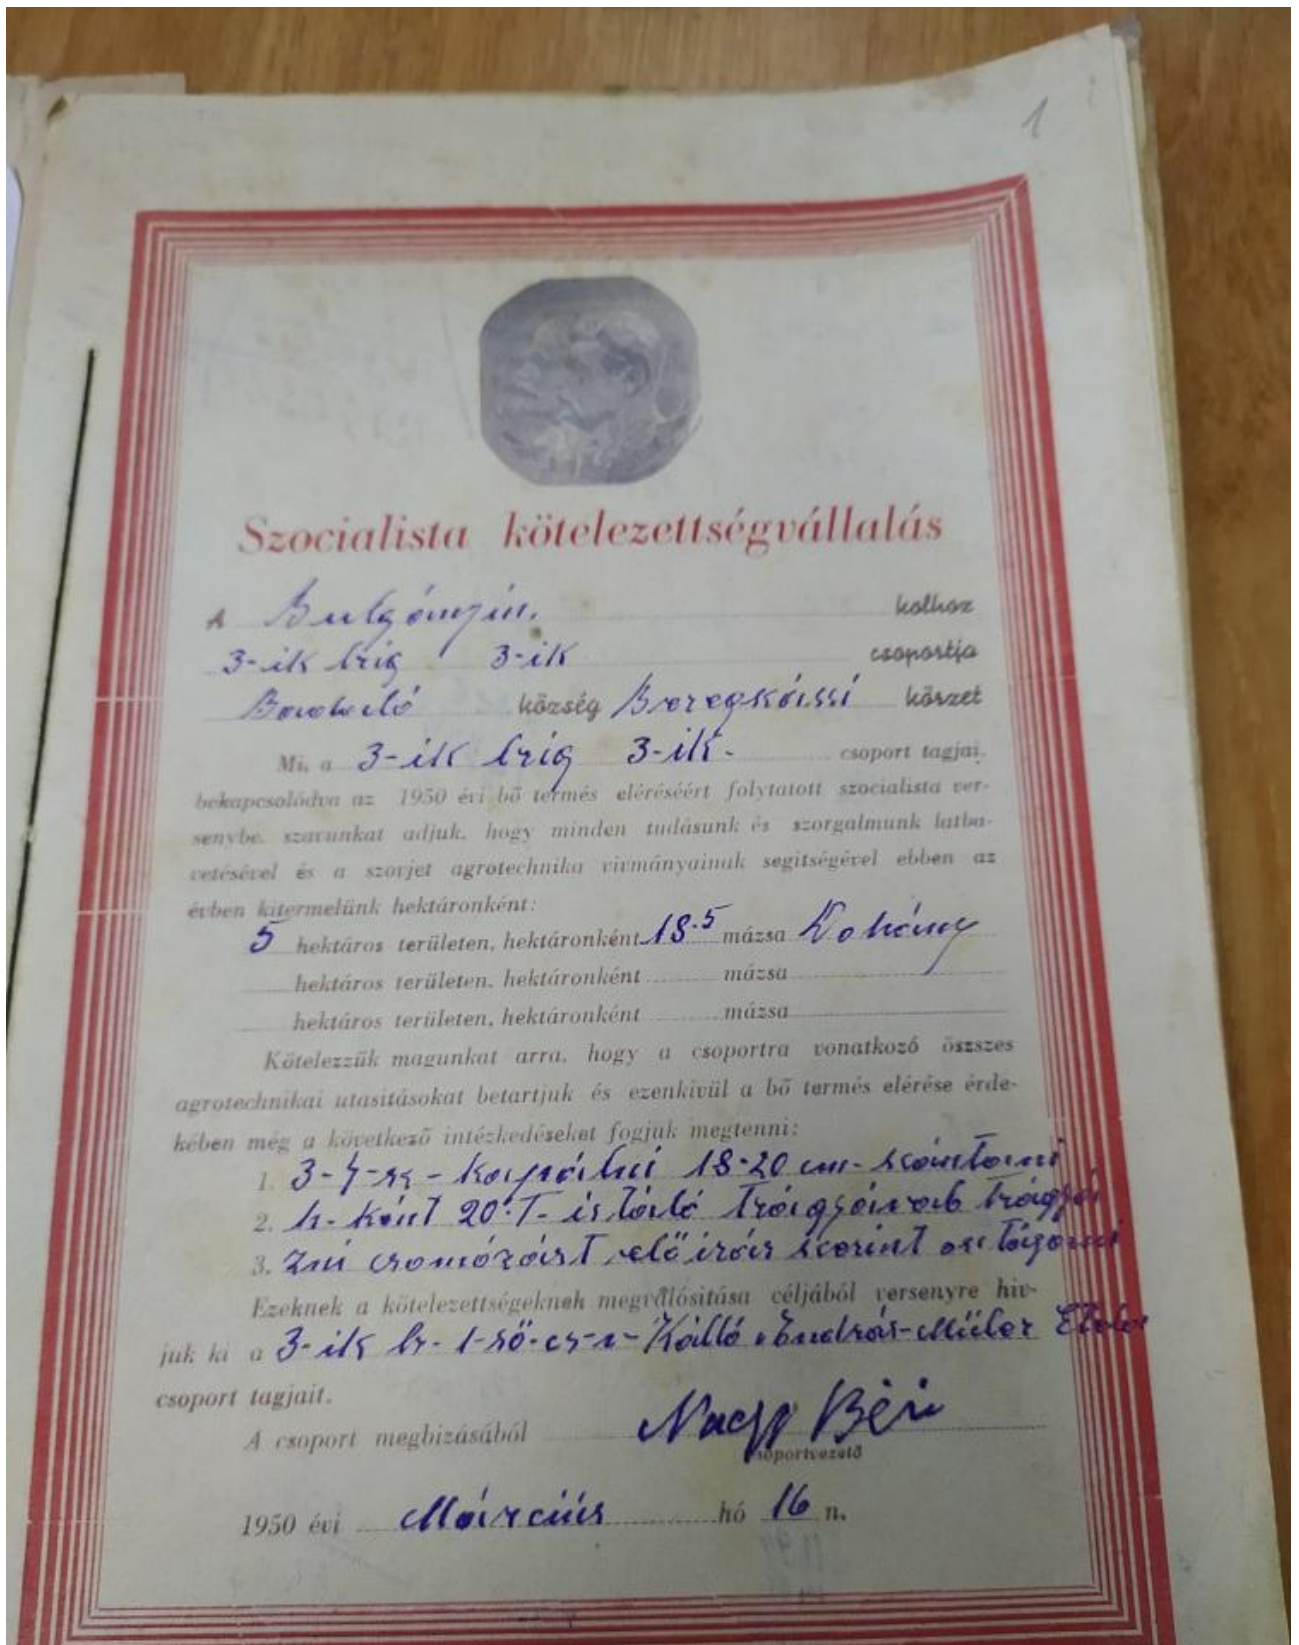 1
Szocialista kötelezettségvállalás
A Bulgányin. kolhoz
3-ik brig 3-ik csoportja
község Beregkászi körzet
Mi, a 3-ik brig 3-ik- csoport tagjai,
bekapcsolódva az 1950 évi bő termés eléréséért folytatott szocialista ver-
senybe, szavunkat adjuk, hogy minden tudásunk és szorgalmunk latba-
vetésével és a szovjet agrotechnika vivmányainak segitségével ebben az
évben kitermelünk hektáronként:
5 hektáros területen, hektáronként 18.5 mázsa Dohány
hektáros területen, hektáronként mázsa
hektáros területen, hektáronként mázsa
Kötelezzük magunkat arra, hogy a csoportra vonatkozó öszszes
agrotechnikai utasitásokat betartjuk és ezenkivül a bő termés elérése érde-
kében még a következő intézkedéseket fogjuk megtenni:
1. kapálni 18-20 cm- szántani
2. h-ként 20-T- istáló trágyával trágyá
3. zni csomózást előirás szerint
Ezeknek a kötelezettségeknek megvalósitása céljából versenyre hiv-
juk ki a 3-ik br- 1-ső-cs- Kálló Endrás-Müler
csoport tagjait.
A csoport megbizásából Nagy Béni
csoportvezető
1950 évi Március hó 16 n.